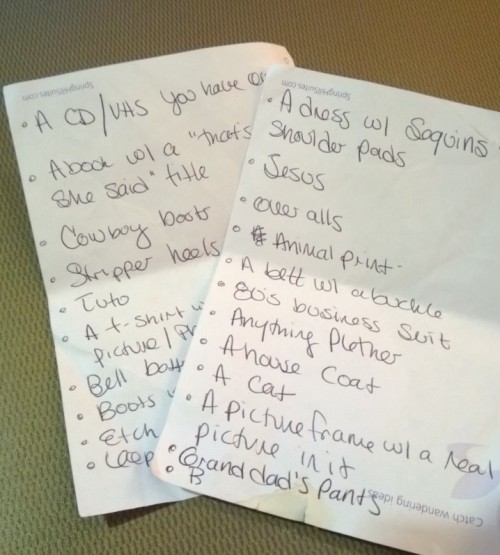 SpringHillSuites.com
• A CD/VHS you have
• A book w/ a "that's
She said" title
• Cowboy boots
• Stripper heels
• Tuto
• A t-shirt
picture/
• Bell bott
• Boots
• Etch
•
SpringHillSuites.com
• A dress w/ Sequins
Shoulder pads
• Jesus
• over alls
• Animal print
• A belt w/ a buckle
• 80's business suit
• Anything Plether
• A house Coat
• A Cat
• A picture frame w/ a real
picture in it
• Grand dad's Pants
• B
Catch wandering ideas